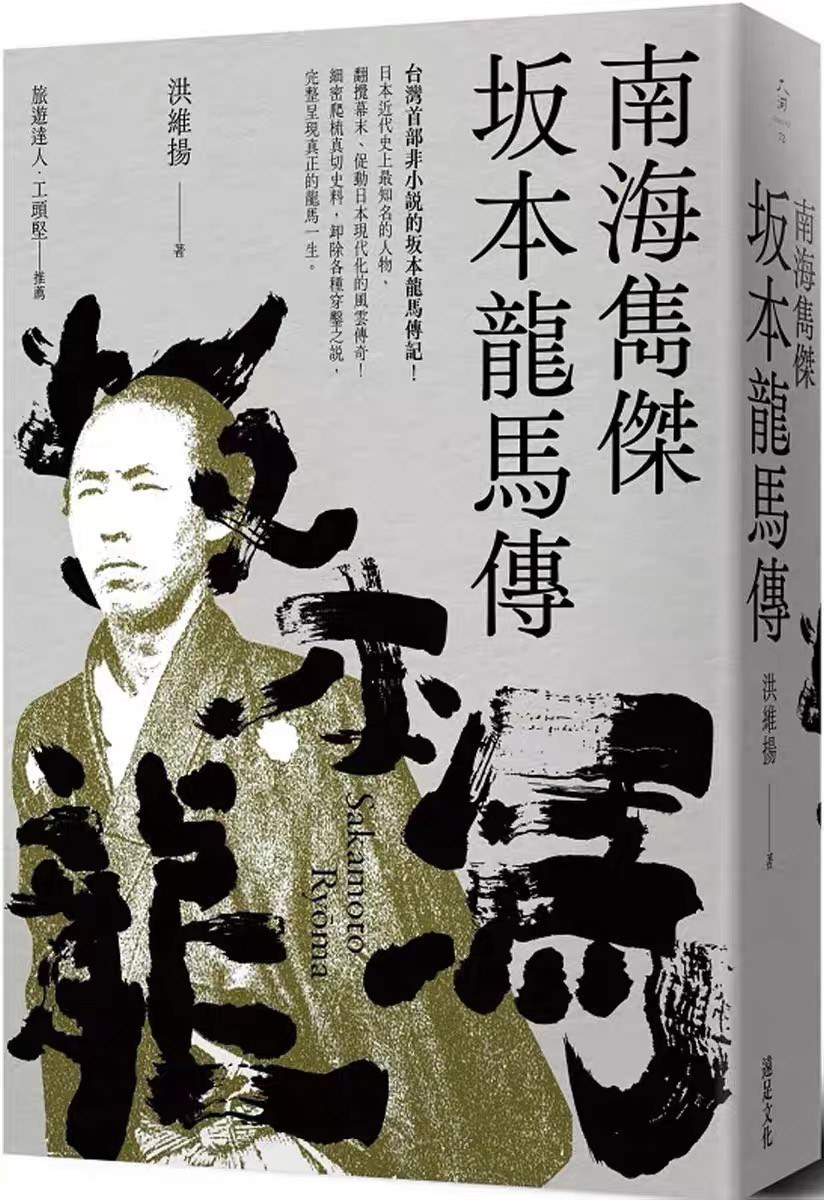 南海雋傑
坂本龍馬傳
台灣首部非小說的坂本龍馬傳記！
日本近代史上最知名的人物、
翻攪幕末、促動日本現代化的風雲傳奇！
細密爬梳真切史料，卸除各種穿鑿之說，
完整呈現真正的龍馬一生。
洪維揚——著
旅遊達人．工頭堅——推薦
坂本龍馬
Sakamoto
Ryōma
南海雋傑
坂本龍馬傳
洪維揚——著
遠足文化